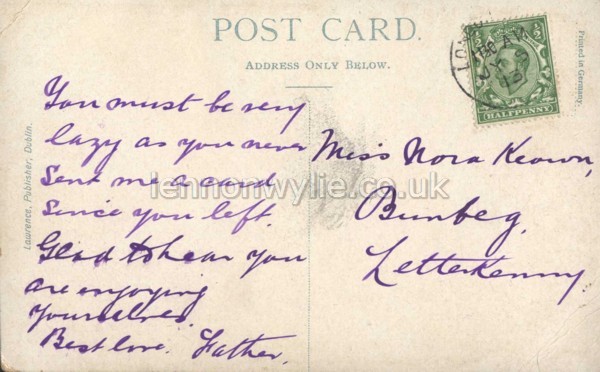 POST CARD.
ADDRESS ONLY BELOW.
You must be very
lazy as you never
sent me a card
since you left.
Glad to hear you
are enjoying
yourselves.
Best love. Father.
Miss Nora Keown,
Bunbeg,
Letterkenny
HALFPENNY
Printed in Germany.
Lawrence, Publisher, Dublin.
lennonwylie.co.uk